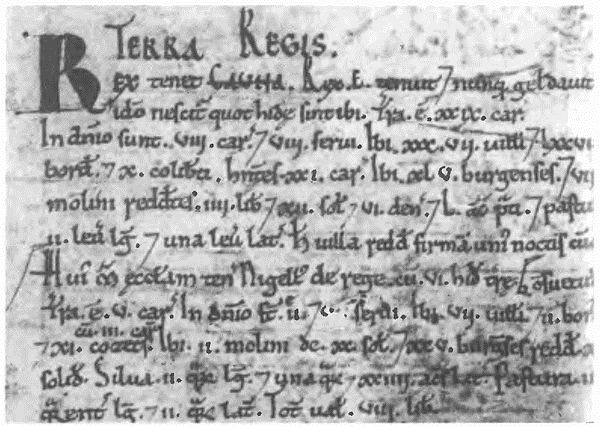 TERRA REGIS.
REX tenet CAUNA. Rex. E. tenuit 7 nunq̃ geldauit
ideo nescit̃ quot hidę sint ibi. T̃ra. ē. xxix. car̃
In dn̄io sunt. viii. car̃. 7 viii. serui. Ibi. xxx. vii. uiłłi 7 lxxvi
bord̃. 7 x. coliƀti. hñtes. xxi. car̃. Ibi xl. v. burgenses. 7 vii
molini redd̃tes. iiii. liƀ 7 xii. sol̃. 7 vi. den̄. 7 L. ac̃ p̃ti. 7 pastu
ii. leũ lḡ. 7 una leũ lat̃. H̃ uilla redd̃ firmã uni noctis cũ
Hui ꝯ̃ ęccłam ten̄ Nigell' de rege. cũ. vi. hid̃ træ
T̃ra. ē. v. car̃. In dn̄io st̃. ii. 7 serui. Ibi. vii. uiłłi. 7 ii. bor
cũ. iii. car̃
7 xi. cozets. Ibi. ii. molini de. xx. sol̃. 7 xxv. burḡses redd̃.
solid̃. Silua. ii. q̃ lḡ. 7 una q̃ 7 xxiiii. ac̃s lat̃. Pastura. ii
q̃rent̃ lḡ. 7 ii. q̃ lat̃. Tot̃ ual̃. viii. liƀ